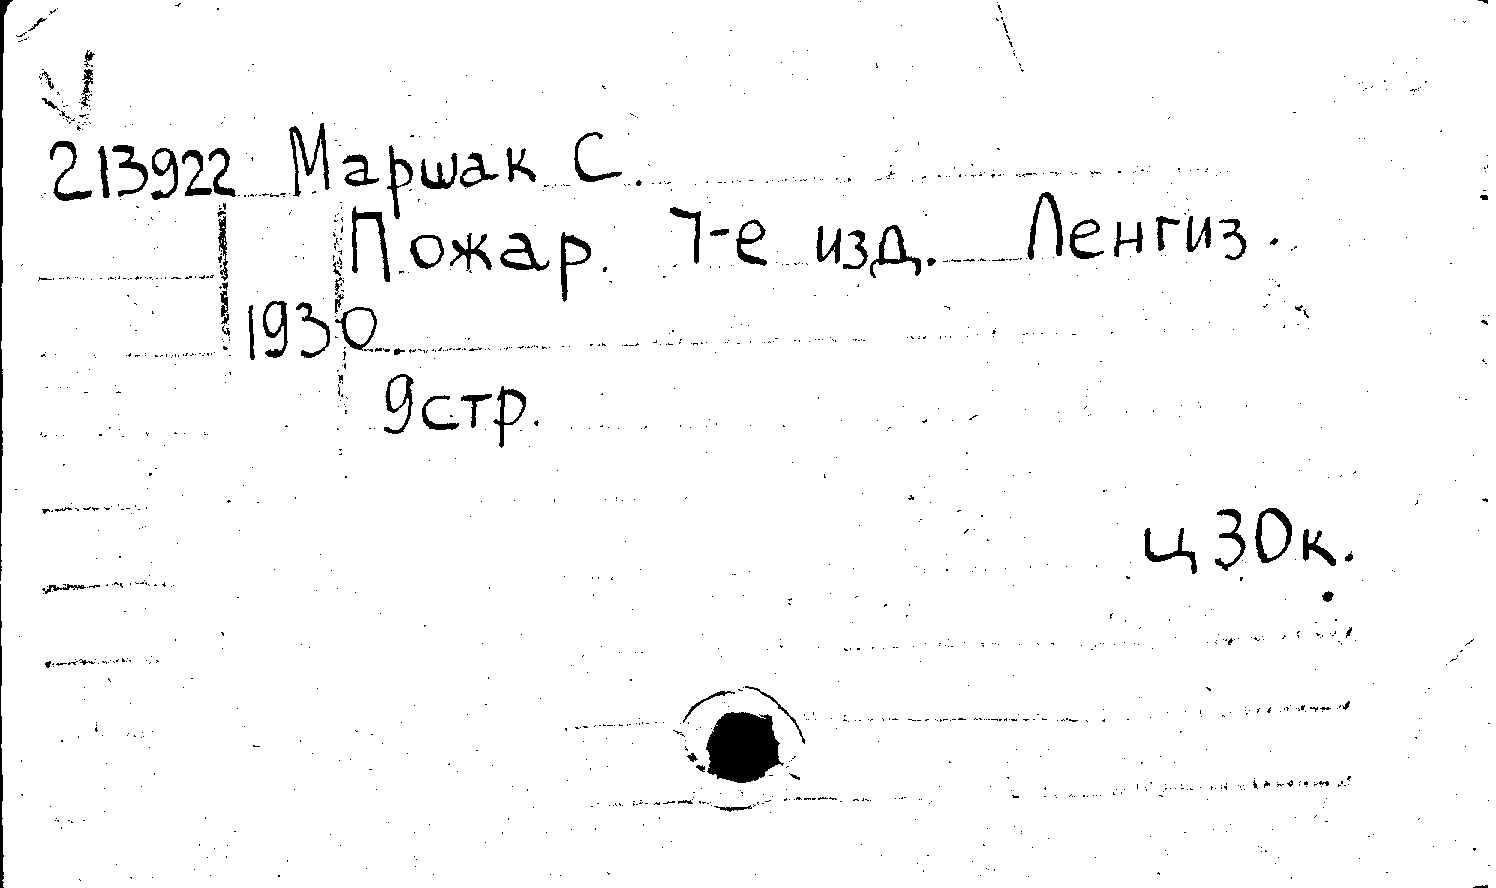 213922 Маршак С.
Пожар. 7-е изд. Ленгиз.
1930.
9стр.
ц 30к.